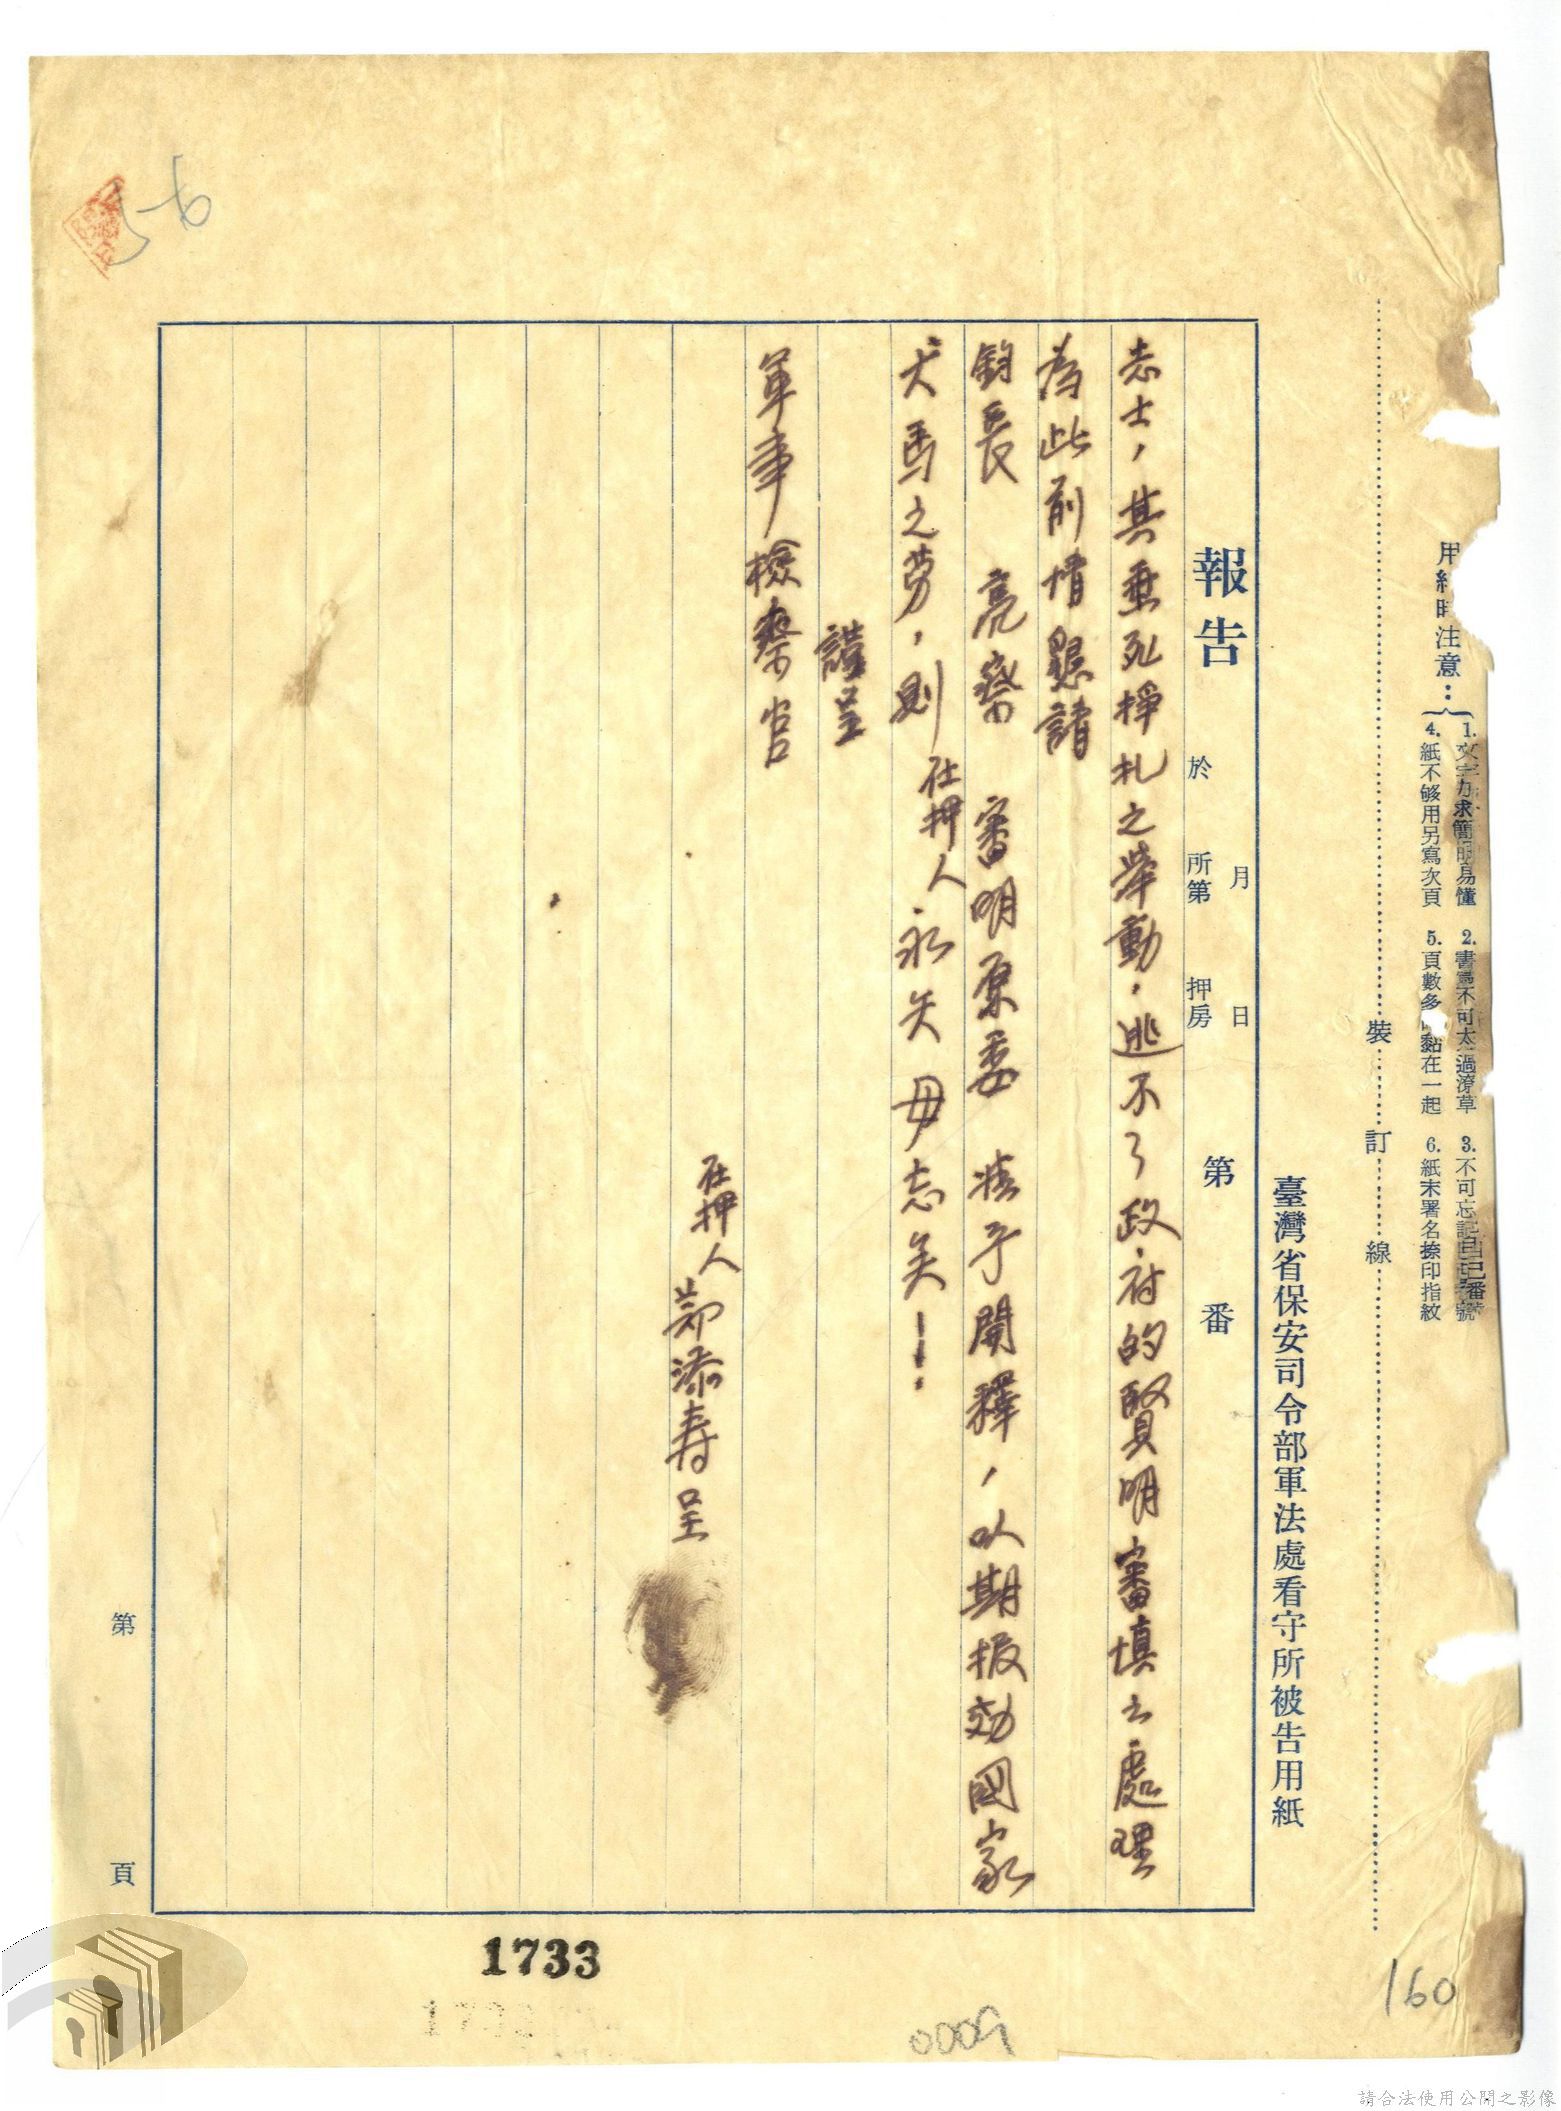 用紙時注意：
1. 文字力求簡明易懂 2. 書寫不可太過潦草 3. 不可忘記自己番號
4. 紙不够用另寫次頁 5. 頁數多 黏在一起 6. 紙末署名捺印指紋
裝 訂 線
臺灣省保安司令部軍法處看守所被告用紙
報告 月 日 第 番
於 所第 押房
志士，其垂死掙扎之舉動，逃不了政府的賢明審填之處理
為此前情懇請
鈞長 亮察 審明原委 准予開釋，以期报効國家
犬馬之劳，則在押人永矢毋忘矣！
謹呈
軍事檢察官
在押人 郑添寿 呈
第 頁
56
1733
0009
160
請合法使用公開之影像